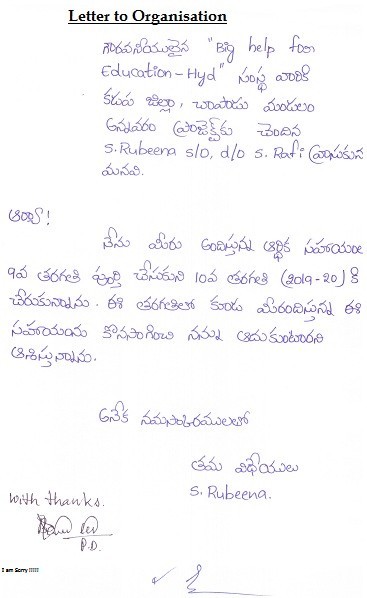 Letter to Organisation
గౌరవనీయులైన "Big help for
Education-Hyd" సంస్థ వారికి
కడప జిల్లా, చాపాడు మండలం
అన్నవరం ప్రాజెక్ట్‌కు చెందిన
S. Rubeena s/o, d/o S. Rafi వ్రాసుకున
మనవి.
ఆర్యా!
నేను మీరు అందిస్తున్న ఆర్థిక సహాయం
9వ తరగతి పూర్తి చేసుకుని 10వ తరగతి (2019-20) కి
చేరుకున్నాను. ఈ తరగతిలో కుడ మీరందిస్తున్న ఈ
సహాయంను కొనసాగించి నన్ను ఆదుకుంటారని
ఆశిస్తున్నాను.
అనేక నమస్కారములతో
తమ విధేయులు
S. Rubeena.
with thanks.
P.D.
I am Sorry !!!!!